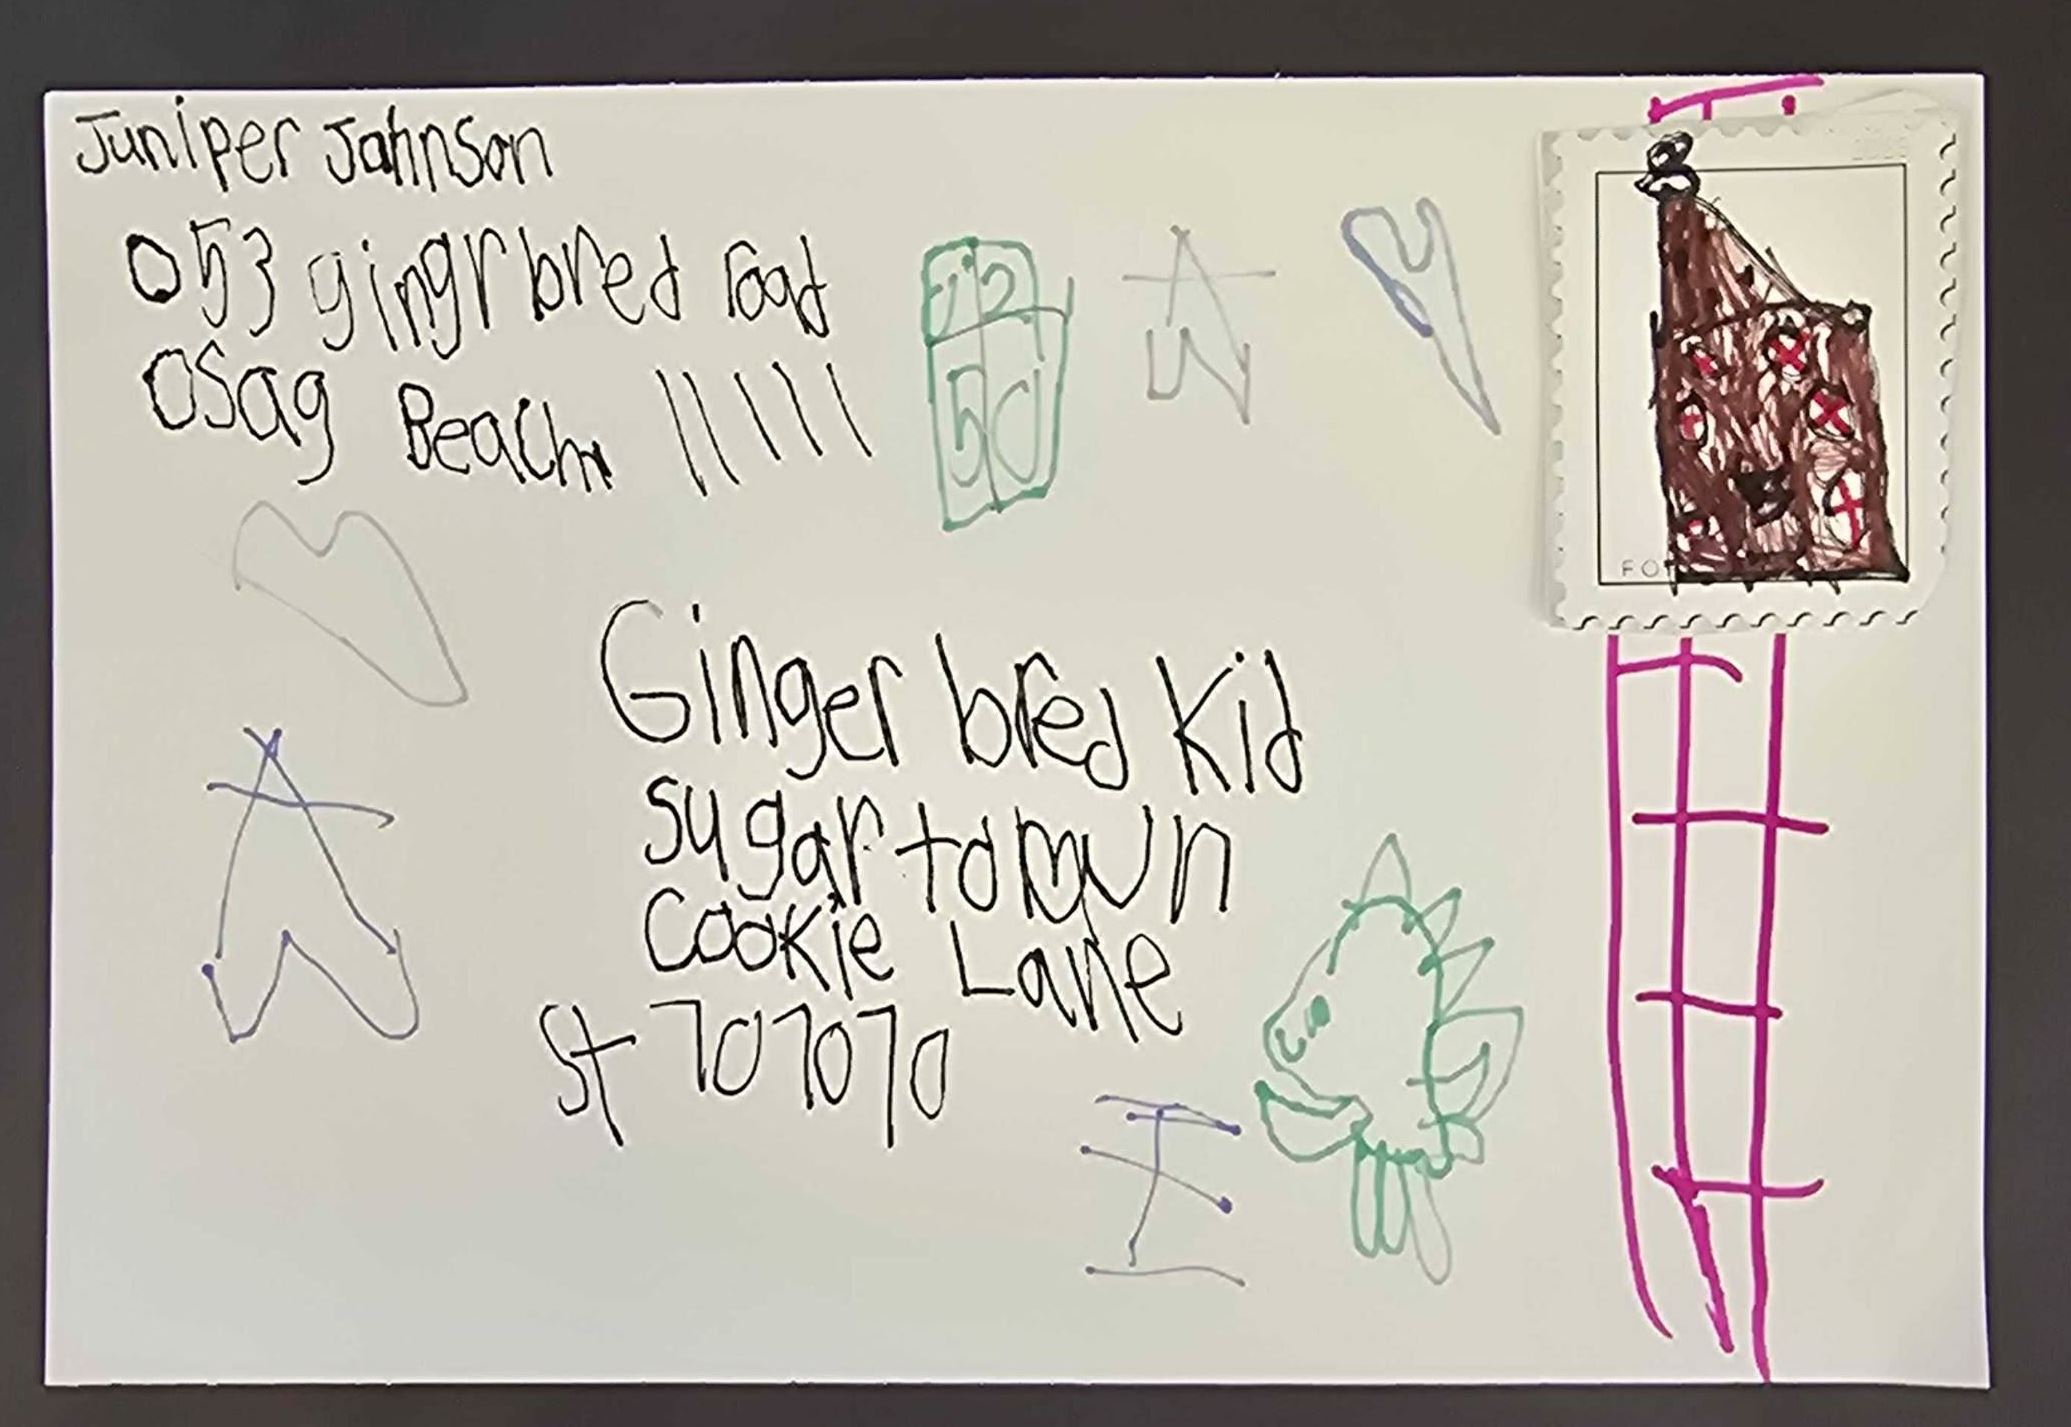 Juniper Jahnson
053 gingrbred road
Osag Beach 111111
Ginger bred Kid
sugar town
Cookie Lane
St 707070
FO